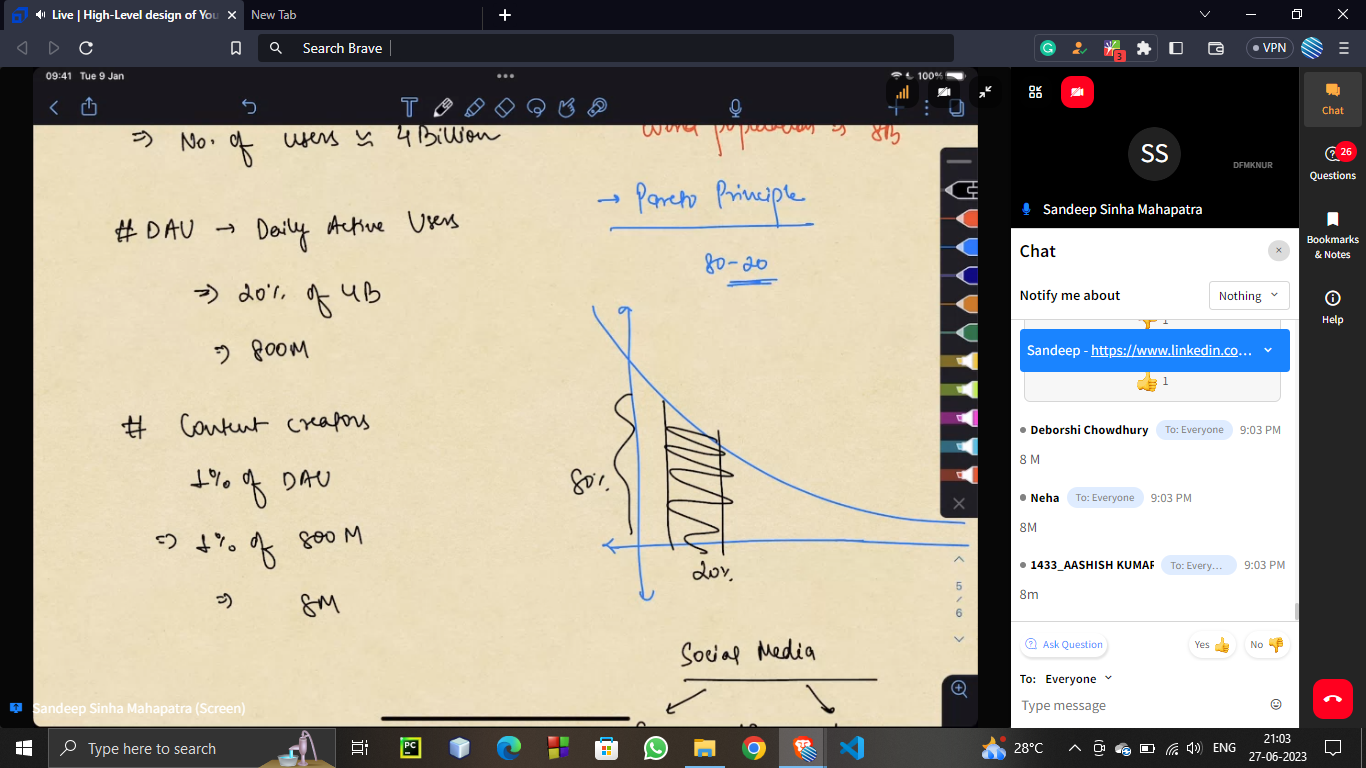 Live | High-Level design of You
New Tab
Search Brave
3
VPN
09:41 Tue 9 Jan
100%
⇒ No. of users ≃ 4 Billion
World population ⇒ 8B
→ Pareto Principle
80-20
# DAU → Daily Active Users
⇒ 20% of 4B
⇒ 800M
# Content creators
1% of DAU
⇒ 1% of 800M
⇒ 8M
80%
20%
Social Media
5
/
6
Sandeep Sinha Mahapatra (Screen)
SS
DFMKNUR
Sandeep Sinha Mahapatra
Chat
Notify me about
Nothing
1
Sandeep - https://www.linkedin.co...
👍 1
Deborshi Chowdhury To: Everyone 9:03 PM
8 M
Neha To: Everyone 9:03 PM
8M
1433_AASHISH KUMAR To: Every... 9:03 PM
8m
Ask Question
Yes 👍
No 👎
To: Everyone
Type message
Chat
26
Questions
Bookmarks
& Notes
Help
Type here to search
PC
28°C
ENG
21:03
27-06-2023